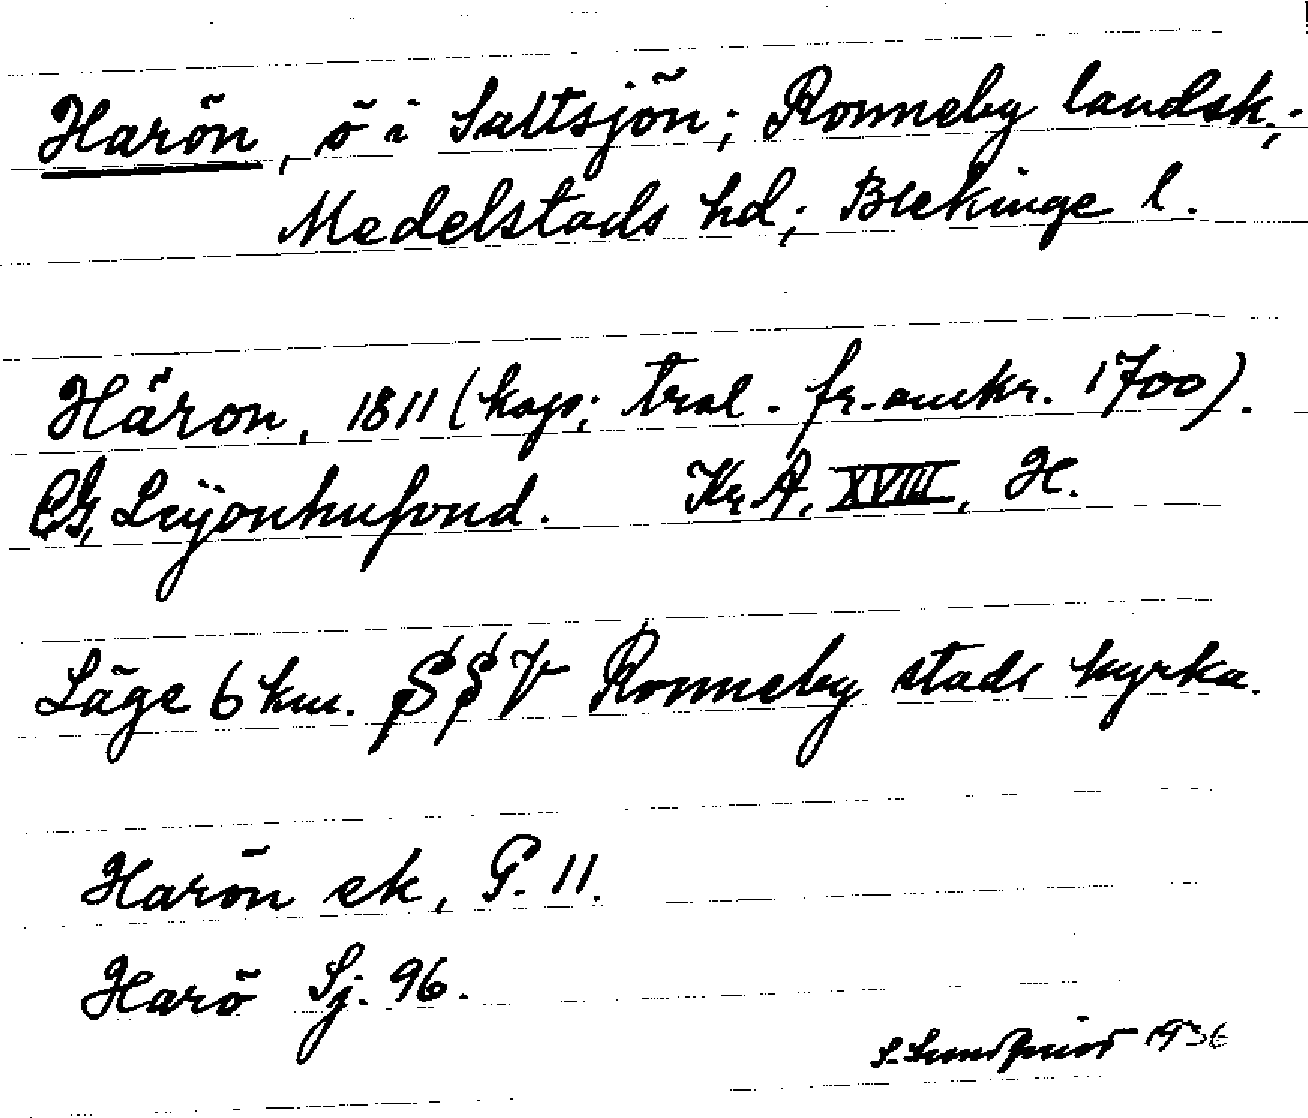 Harön, ö i Saltsjön; Ronneby landsk.;
Medelstads hd; Blekinge l.
Häron, 1811 (kop; trol. fr. omkr. 1700).
CG, Leijonhufvud. Kr A, XVIII, H.
Läge 6 km. SSV Ronneby stads kyrka.
Harön ek, G. 11.
Harö Sj. 96.
S. 1936